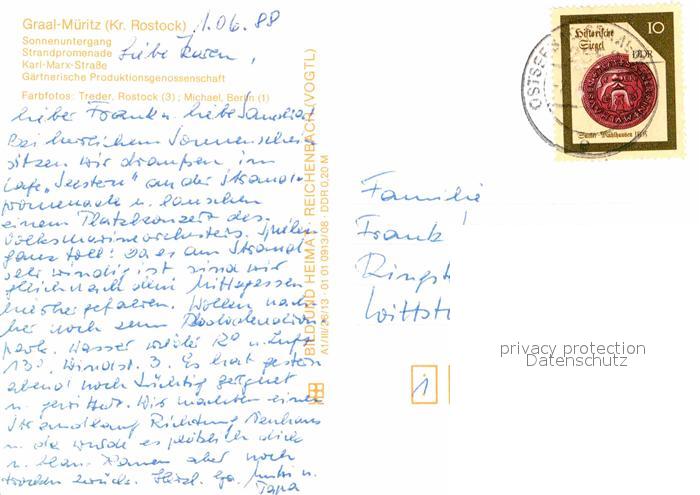 Graal-Müritz (Kr. Rostock)
1.06.88
Sonnenuntergang
Strandpromenade
Karl-Marx-Straße
Gärtnerische Produktionsgenossenschaft
Farbfotos: Treder, Rostock (3); Michael, Berlin (1)
Liebe Karen,
lieber Frank u. liebe
Bei herrlichem Sonnenschein
sitzen wir draußen im
Cafe „Seestern" an der Strand-
promenade u. lauschen
einem Platzkonzert des
Volksmarineorchesters. Spielen
ganz toll! Da es am Strand
sehr windig ist sind wir
gleich nach dem Mittagessen
hierher gefahren. Wollen nach-
her noch zum Rhododendron
park. Wasser wieder 12° u. Luft
13°, Windst. 3. Es hat gestern
abend noch tüchtig geregnet
u. gewittert. Wir machten einen
Strandlauf Richtung Neuhaus
u. da wurde es plötzlich dick
u. blau. Kamen aber noch
trocken zurück. Herzl. Gr. Mutti u.
Papa
BILD UND HEIMAT · REICHENBACH (VOGTL)
A1/III/26/13 · 01 01 0913/08 · DDR 0,20 M
OSTSEE
Historische
Siegel
10
DDR
Familie
Frank
Ringst
Wittst
privacy protection
Datenschutz
1